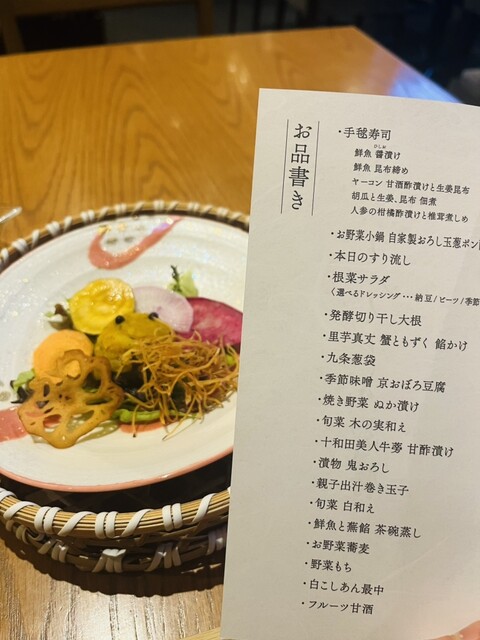 お品書き
・手毬寿司
ひしお
鮮魚 醤漬け
鮮魚 昆布締め
ヤーコン 甘酒酢漬けと生姜昆布
胡瓜と生姜、昆布 佃煮
人参の柑橘酢漬けと椎茸煮しめ
・お野菜小鍋 自家製おろし玉葱ポン
・本日のすり流し
・根菜サラダ
〈選べるドレッシング…納豆/ビーツ/季節
・発酵切り干し大根
・里芋真丈 蟹ともずく 餡かけ
・九条葱袋
・季節味噌 京おぼろ豆腐
・焼き野菜 ぬか漬け
・旬菜 木の実和え
・十和田美人牛蒡 甘酢漬け
・漬物 鬼おろし
・親子出汁巻き玉子
・旬菜 白和え
・鮮魚と蕪餡 茶碗蒸し
・お野菜蕎麦
・野菜もち
・白こしあん最中
・フルーツ甘酒